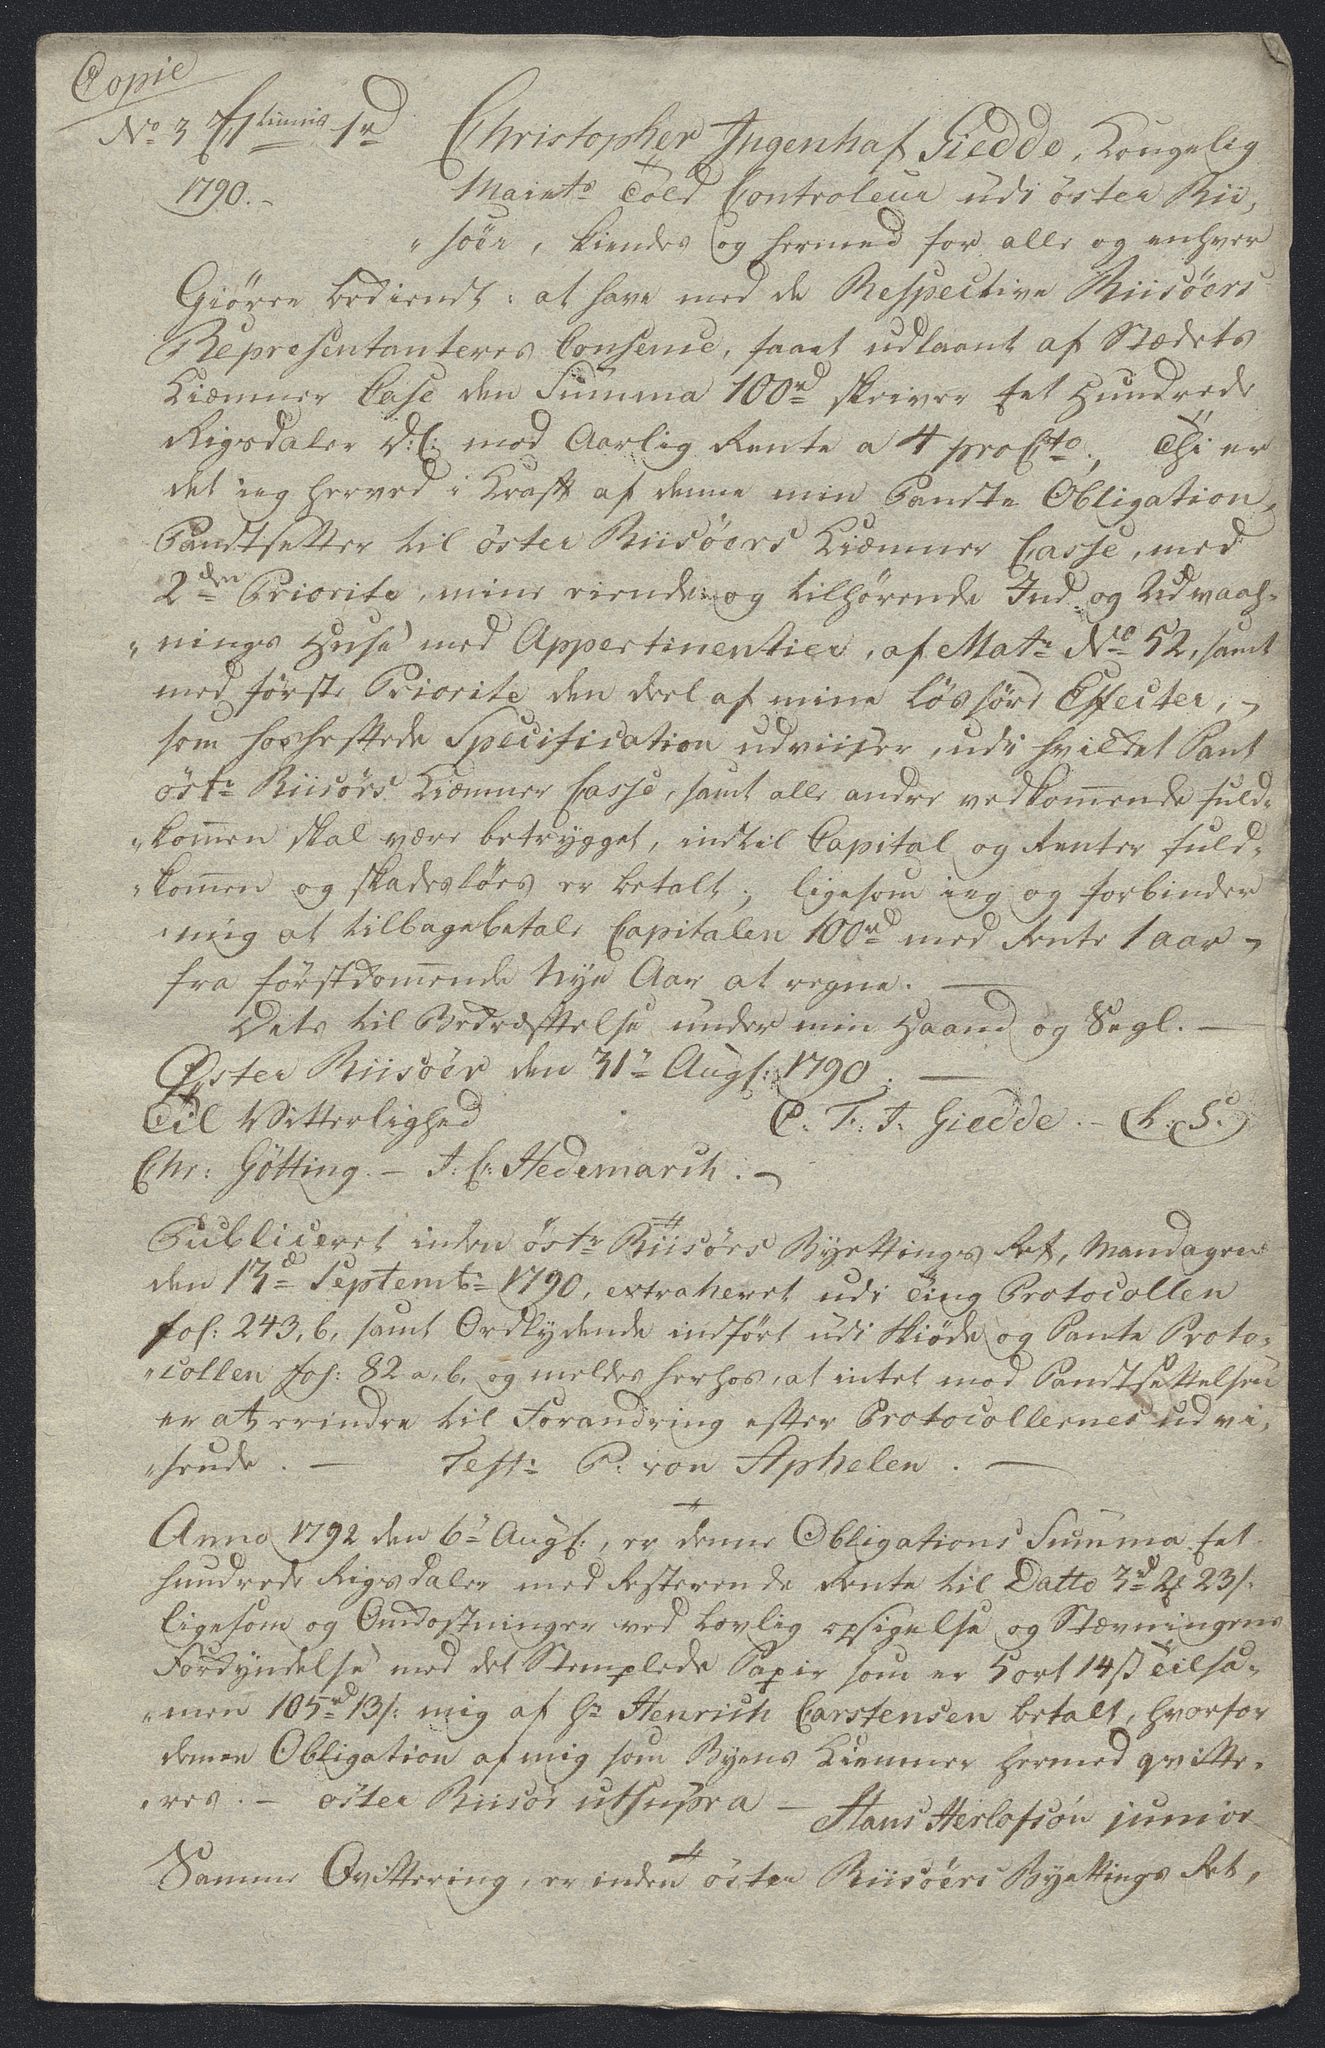 Copie
No 3 1 1rd Christopher Ingenhaf Giedde, Kongelig
1790.- Maiets Told Controleur udi öster Rii,
"söer, kiendes og hermed for alle og enhver
Giörer bediendt: at have med de Respective Riisöers
Repræsentanteres Consence, faaet udlaant af Stædets
Kiæmner Case den Summa 100rd skriver Eet Hundrede
Rigsdaler D.C: mod Aarlig Rente a 4 pro Cto., Thi er
det ieg herved i Kraft af denne min Pandte Obligation,
Pandtsetter til öster Riisöers Kiæmner Casse, med
2den Priorite, mine eiende og tilhörende Ind og Udvaah-
"nings Huse med Appertinentier, af Matr No 52, samt
med förste Priorite den deel af mine Lös söre Effecter, -
som hoshæftede Specification udviiser, udi hvilket Pant
östr Riisörs Kiæmner Casse, samt alle andre vedkommende fuld-
"kommen skal være betrygget, indtil Capital og Renter fuld-
"kommen og skadeslöes er betalt; ligesom ieg og forbinder
mig at tilbagebetale Capitalen 100rd med Rente 1 aar -
fra förstkommende Nye Aar at regne. —
Dets til Bekræftelse under min Haand og Segl. —
Öster Riisöer den 31te Augs: 1790. —
Til Vitterlighed C. F. I. Giedde. - (L.S.)
Chr: Götting. - I: C: Hedemarck. -
Publiceret inden östr Riisörs Byettings Ret, Mandagen
den 13d Septembr 1790, extraheret udi Ting Protocollen
fol: 243, b, samt Ordlydende indfört udi Skiöde og Pante Proto-
"collen fol: 82 a, b, og meldes herhos, at intet mod Pandtsettelsen
er at erindre til Forandring efter Protocollernes udvi-
"sende. — Test: P: von Aphelen. —
Anno 1792 den 6te Augs:, er denne Obligations Summa Eet
hundrede Rigsdaler med Resterende Rente til Datto 3rd 2 23s.
ligesom og Omkostninger ved Lovlig opsigelse og Stævningens
Forkyndelse med det Stemplede Papir som er 5 ort 14s Tilsa-
"men 105rd 13s: mig af Hr Henrich Carstensen betalt, hvorfor
denne Obligation af mig som Byens Kiemner hermed qvitte-
"res. - öster Riisör ut supra - Hans Herlofsön junior
Samme Qvittering, er inden öster Riisöers Byettings Ret,